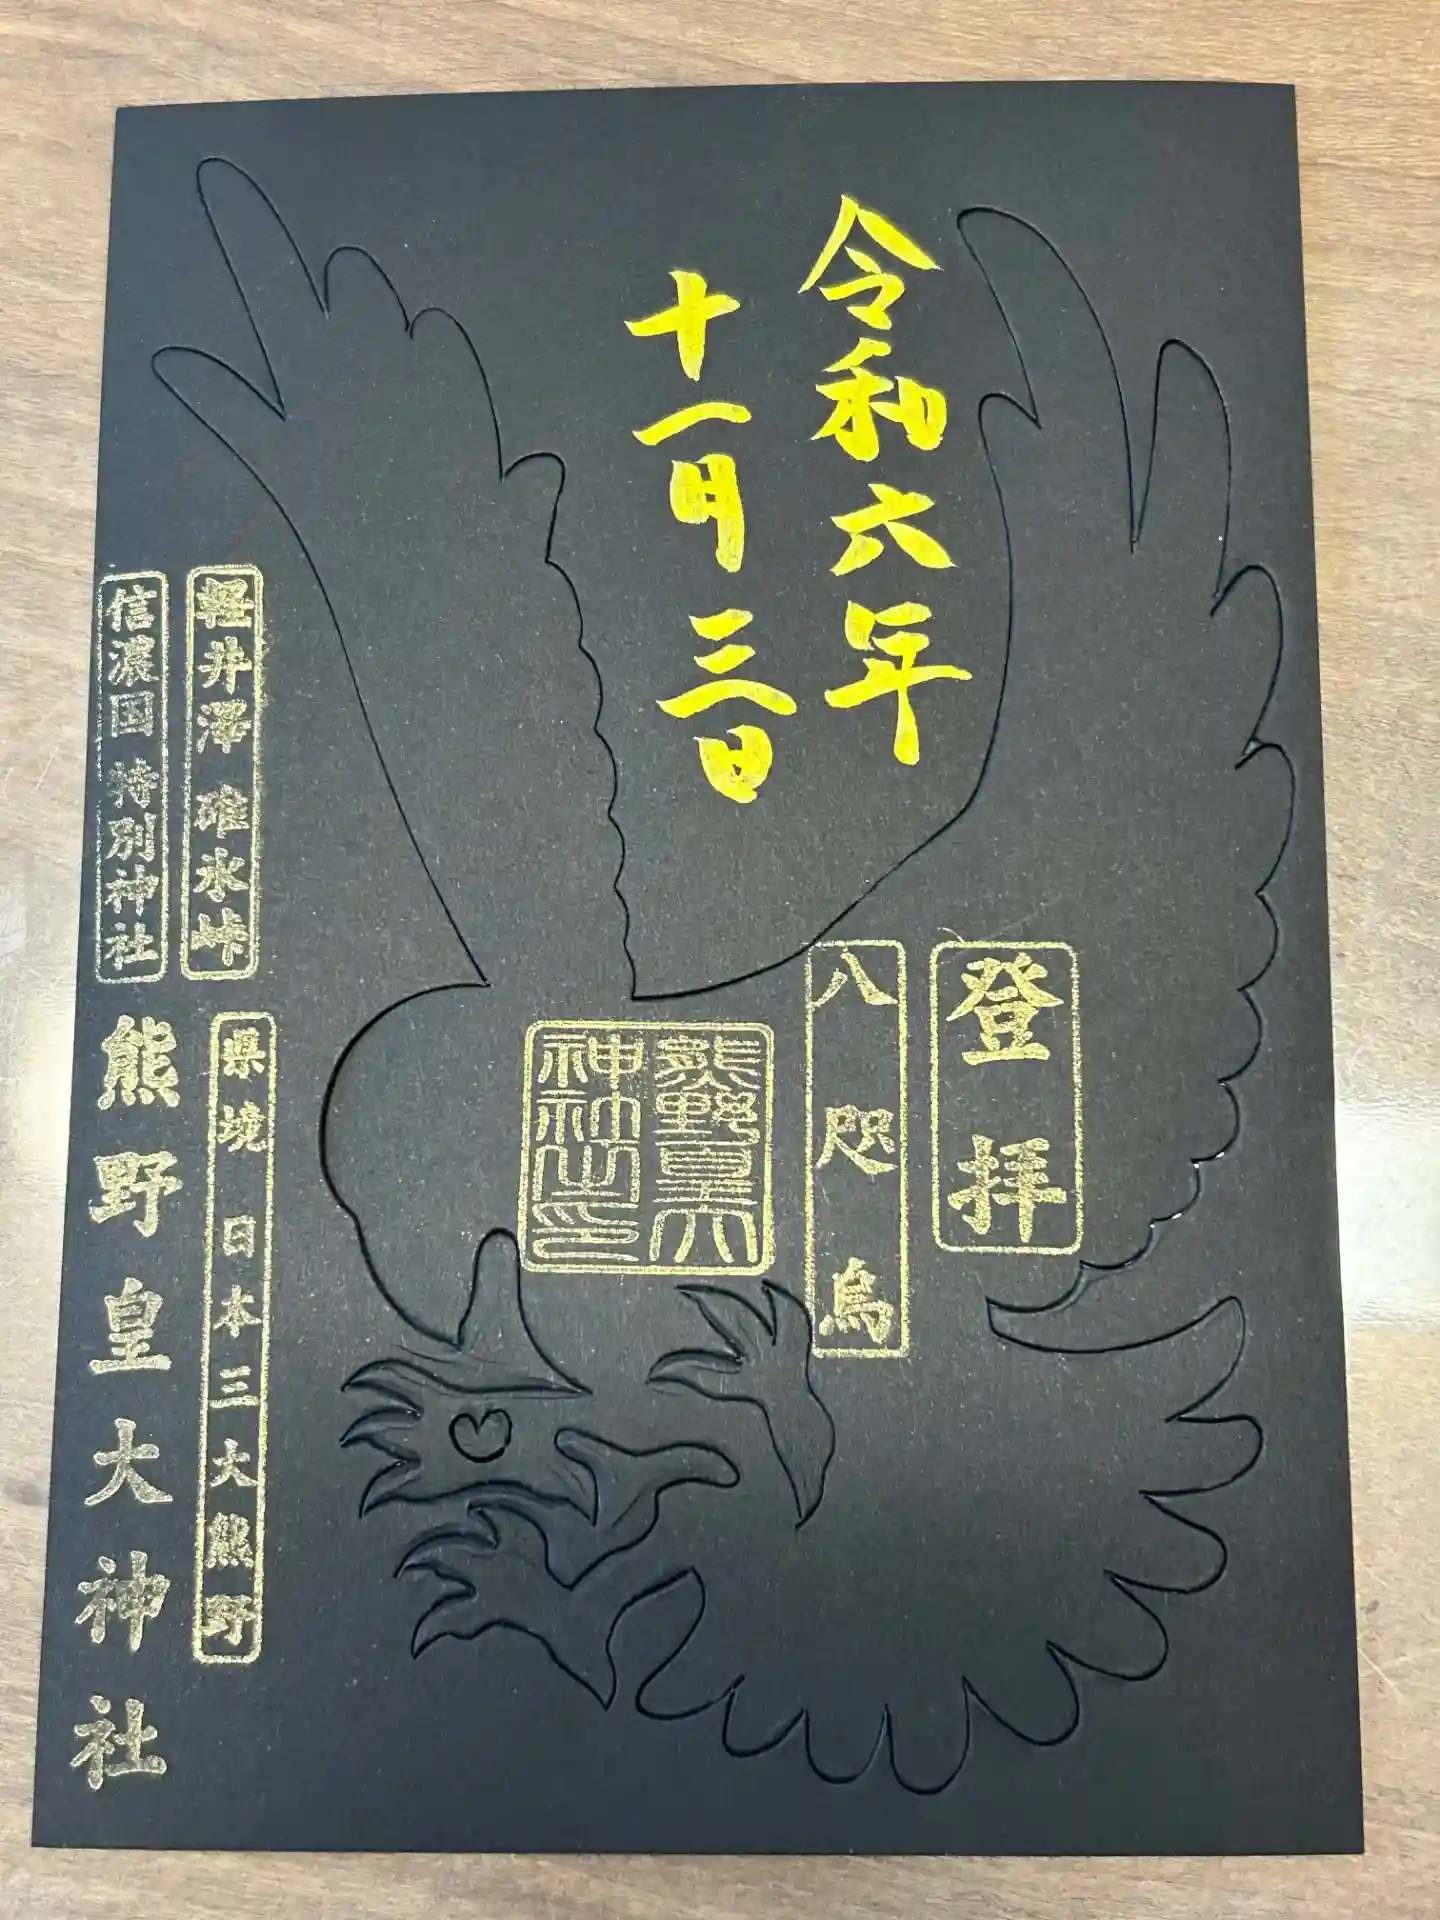 令和六年
十一月三日
登拝
八咫烏
熊野皇大
神社之印
軽井澤 碓氷峠
信濃国 特別神社
県境 日本三大熊野
熊野皇大神社